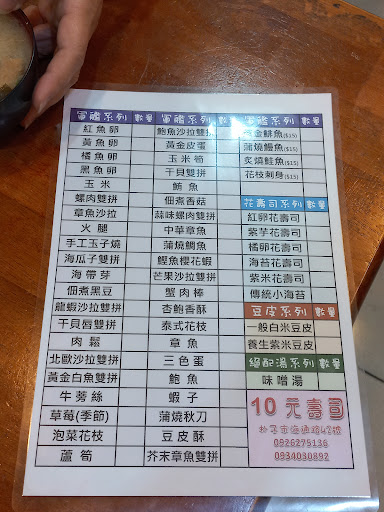 軍艦系列 數量
紅魚卵
黃魚卵
橘魚卵
黑魚卵
玉米
螺肉雙拼
章魚沙拉
火腿
手工玉子燒
海瓜子雙拼
海帶芽
佃煮黑豆
龍蝦沙拉雙拼
干貝唇雙拼
肉鬆
北歐沙拉雙拼
黃金白魚雙拼
牛蒡絲
草莓(季節)
泡菜花枝
蘆筍
軍艦系列 數量
鮑魚沙拉雙拼
黃金皮蛋
玉米筍
干貝雙拼
鮪魚
佃煮香菇
蒜味螺肉雙拼
中華章魚
蒲燒鯛魚
鰹魚櫻花蝦
芒果沙拉雙拼
蟹肉棒
杏鮑香酥
泰式花枝
章魚
三色蛋
鮑魚
蝦子
蒲燒秋刀
豆皮酥
芥末章魚雙拼
軍艦系列 數量
黃金鯡魚($15)
蒲燒鰻魚($15)
炙燒鮭魚($15)
花枝刺身($15)
花壽司系列 數量
紅卵花壽司
紫芋花壽司
橘卵花壽司
海苔花壽司
紫米花壽司
傳統小海苔
豆皮系列 數量
一般白米豆皮
養生紫米豆皮
絕配湯系列 數量
味噌湯
10元壽司
朴子市海通路42號
0926275136
0934030892